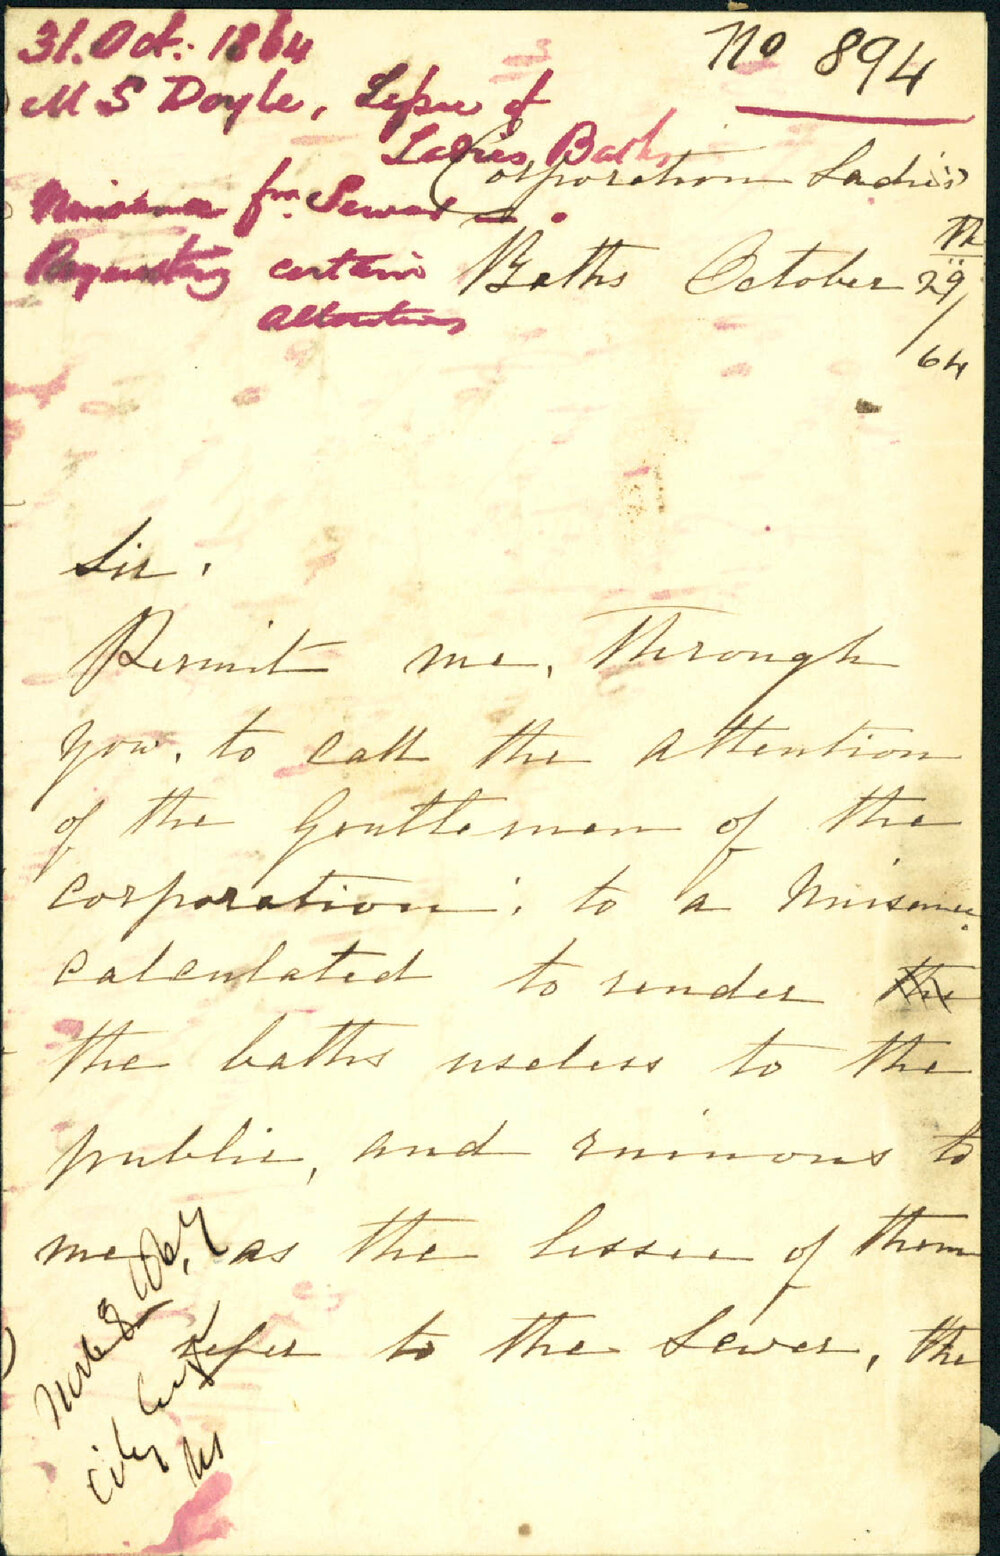 31. Oct. 1864
No 894
M S Doyle, Lessee of
Ladies Baths
Nuisance fm Sewer
Requesting certain
alterations
Corporation Ladies
Baths October 29th/
64
Sir,
Permit me, Through
you, to call the attention
of the Gentlemen of the
corporation; to a Nuisance
calculated to render the
the baths useless to the
public, and ruinous to
me, as the lessee of them
refer to the Sewer, the
City